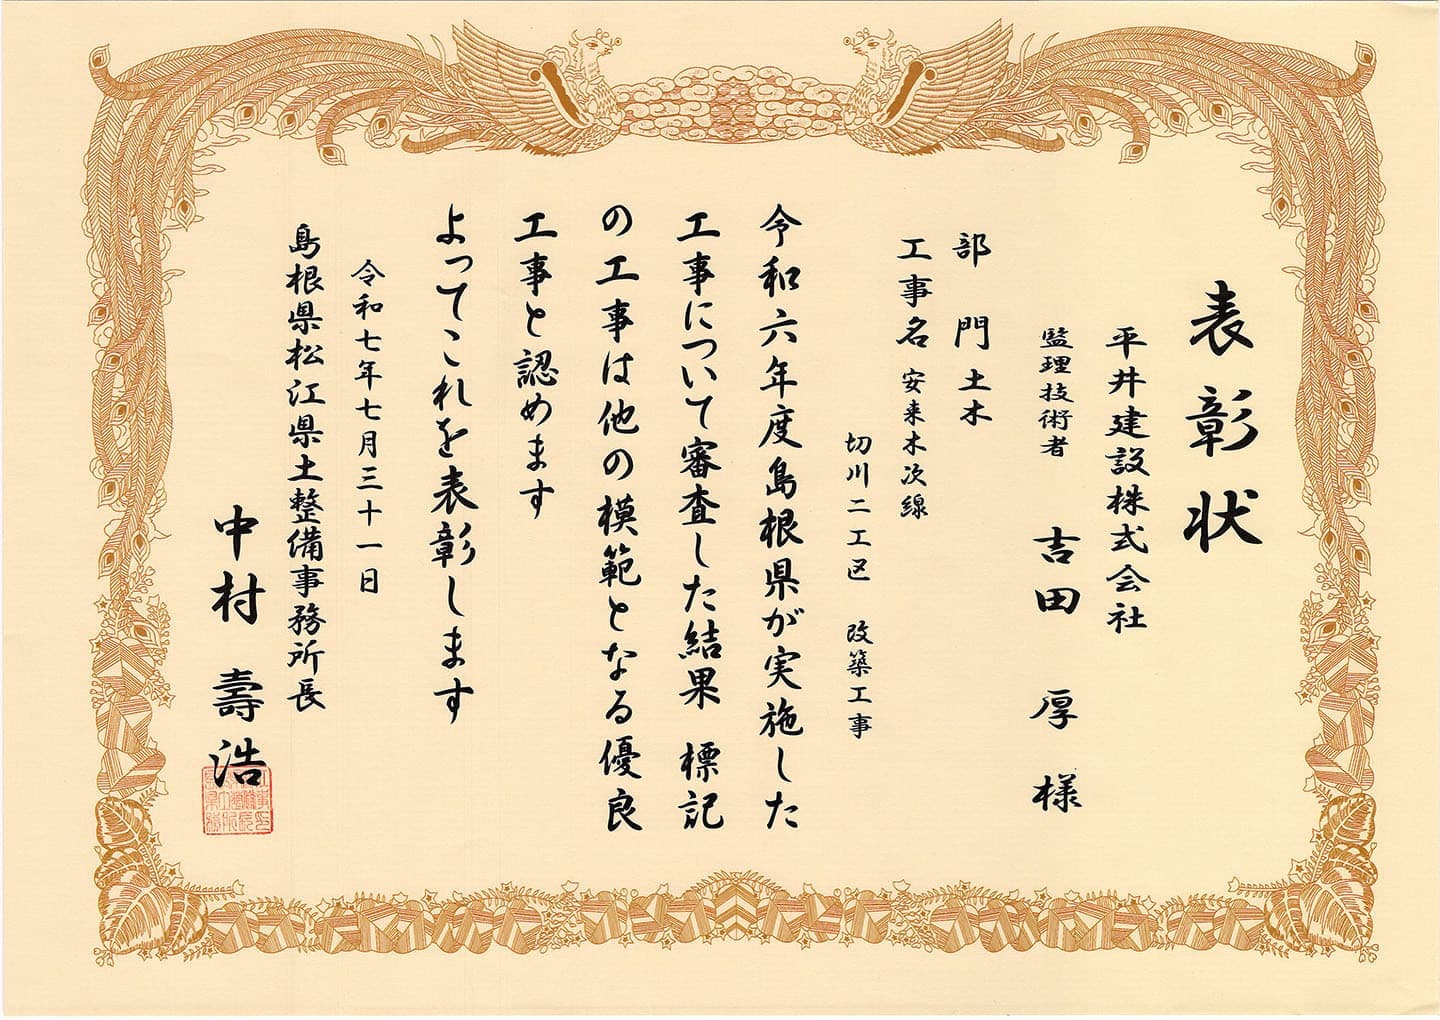 表彰状
平井建設株式会社
監理技術者 吉田 厚 様
部門 土木
工事名 安来木次線
切川二工区 改築工事
令和六年度島根県が実施した
工事について審査した結果 標記
の工事は他の模範となる優良
工事と認めます
よってこれを表彰します
令和七年七月三十一日
島根県松江県土整備事務所長
中村 壽浩